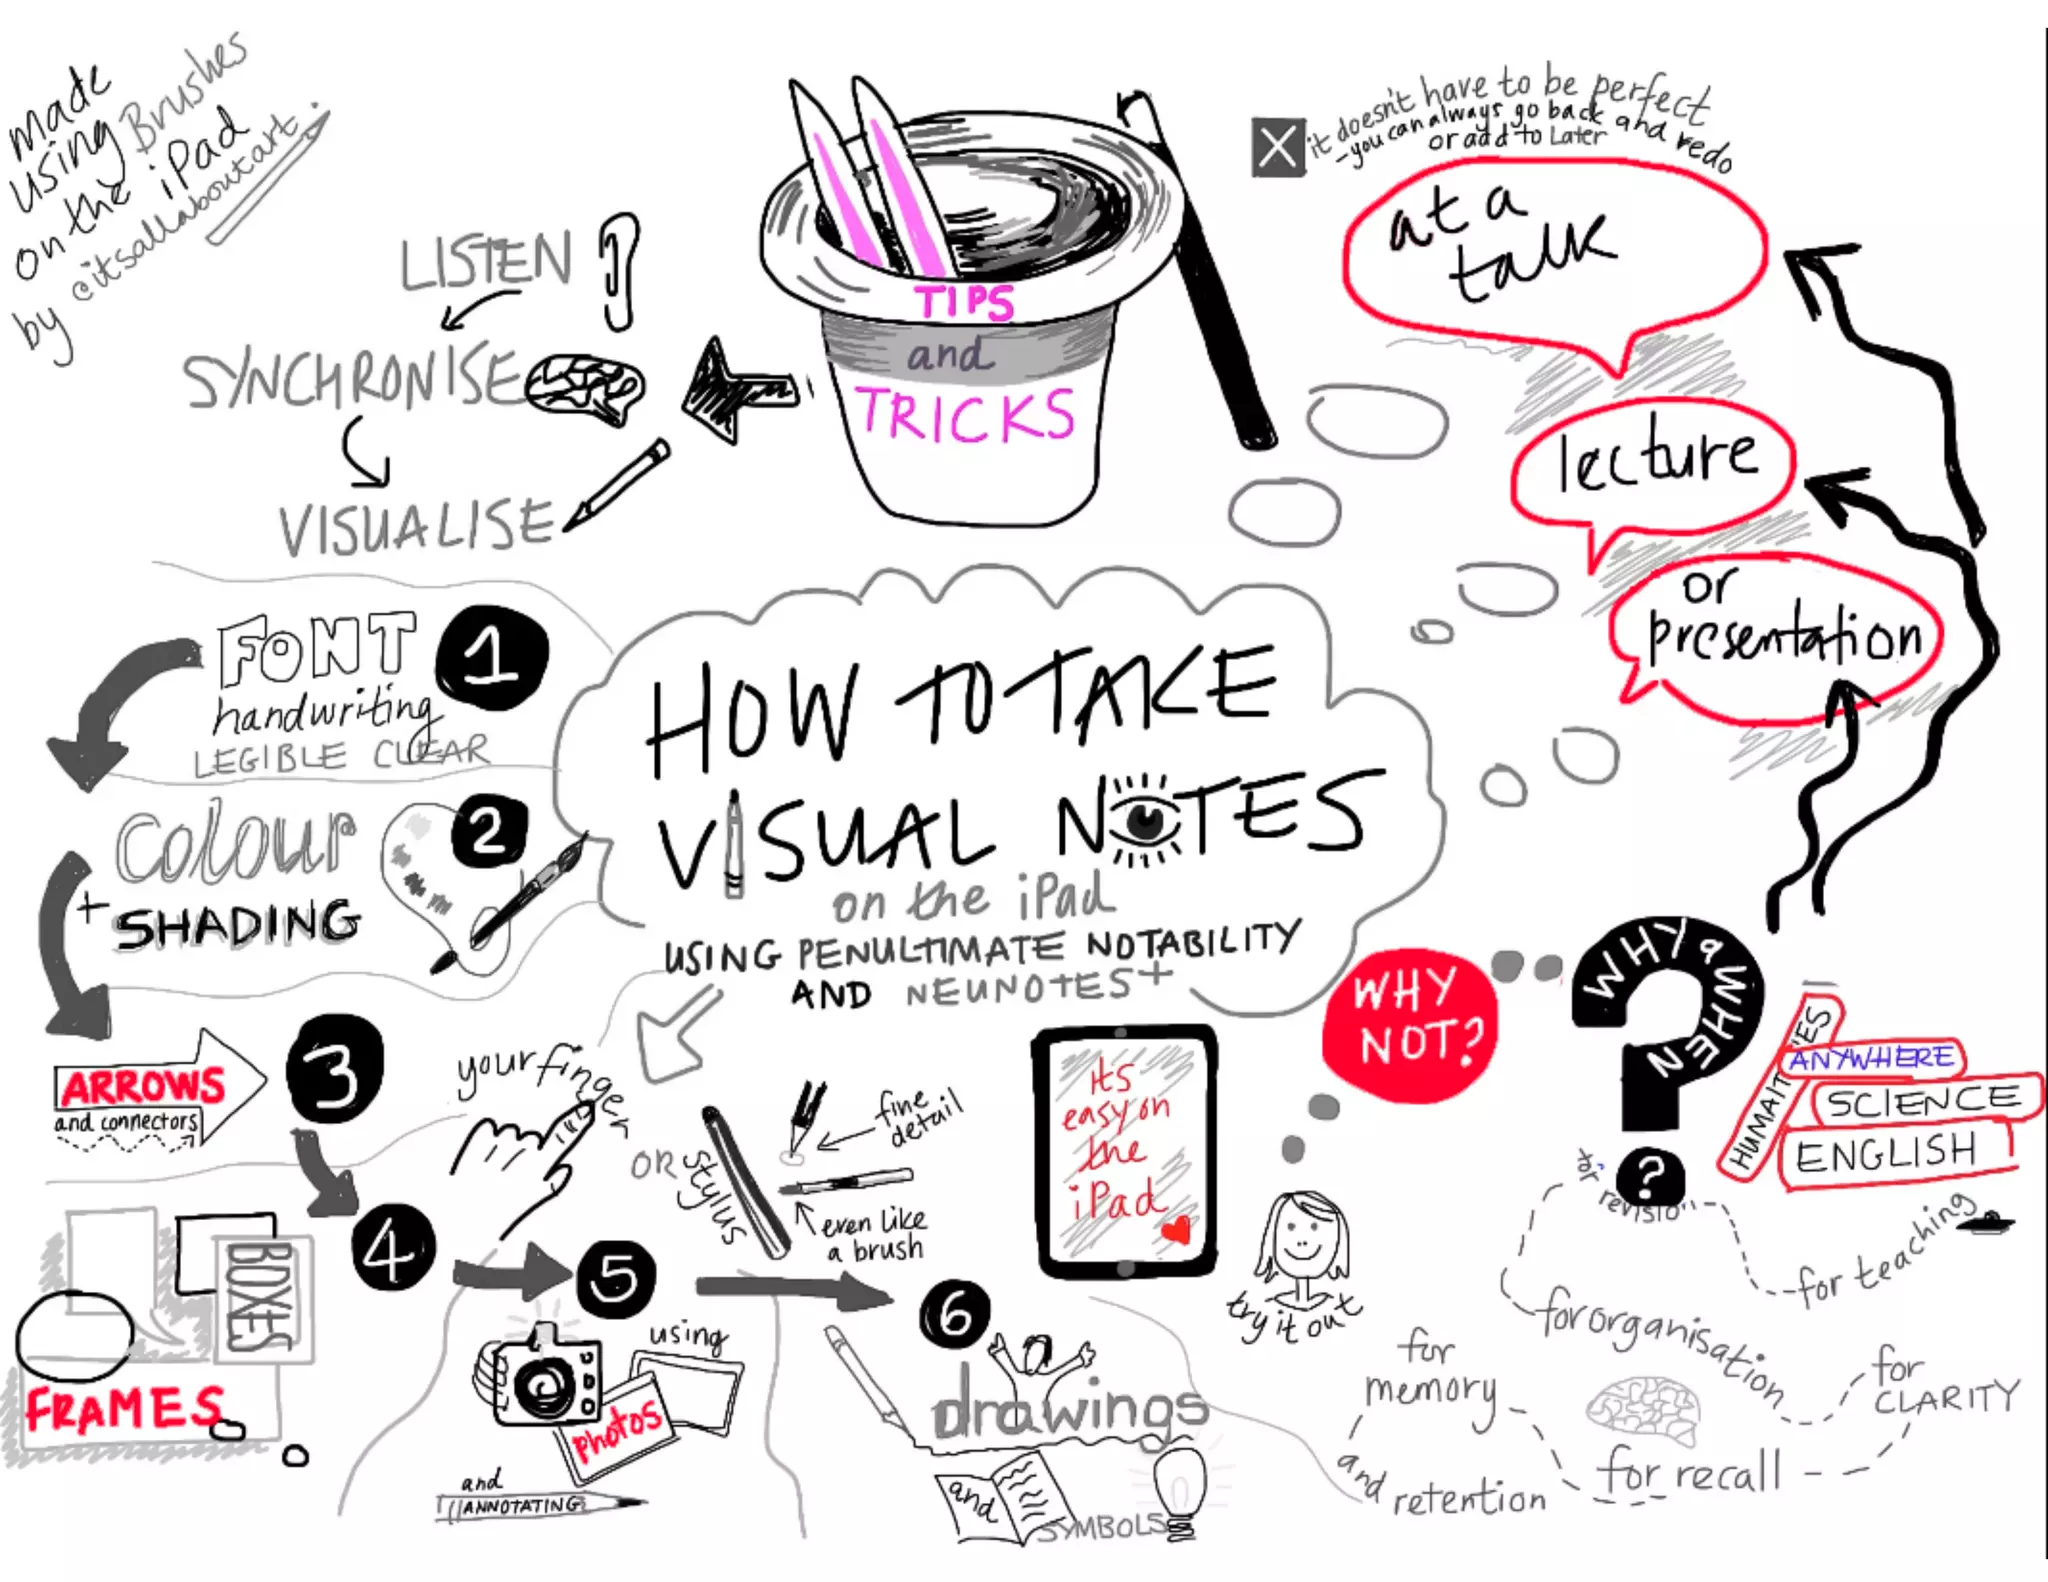 made
using Brushes
on the iPad
by @itsallaboutart.
LISTEN
SYNCHRONISE
VISUALISE
TIPS
and
TRICKS
it doesn't have to be perfect
- you can always go back and redo
or add to Later
at a
talk
lecture
or
presentation
HOW TO TAKE
VISUAL NOTES
on the iPad
USING PENULTIMATE NOTABILITY
AND NEUNOTES+
1
FONT
handwriting
LEGIBLE CLEAR
2
Colour
+ SHADING
3
ARROWS
and connectors
4
BOXES
FRAMES
5
using
photos
and
ANNOTATING
6
drawings
and
SYMBOLS
your finger
OR
stylus
fine
detail
even like
a brush
its
easy on
the
iPad
WHY
NOT?
try it out
WHY & WHEN
?
HUMANITIES
ANYWHERE
SCIENCE
ENGLISH
for teaching
for organisation
for
memory
and retention
for recall
for
CLARITY